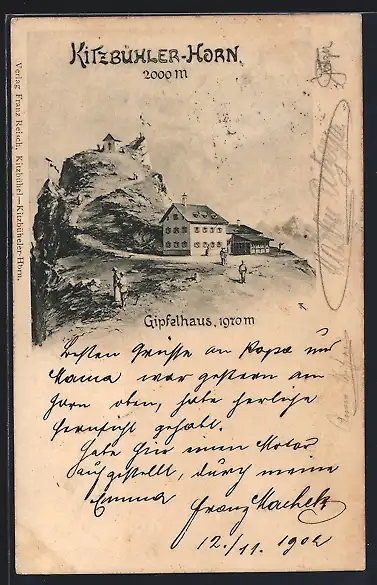 KITZBÜHLER-HORN,
2000 m
Verlag Franz Reisch, Kitzbühel—Kitzbüheler-Horn.
Gipfelhaus, 1970 m
Besten Grüsse an Papa und
Mama war gestern am
Horn oben, habe herliche
Fernsicht gehabt.
Habe hier einen Motor
aufgestellt, durch meine
Emma
Franz Machek
12./11. 1902